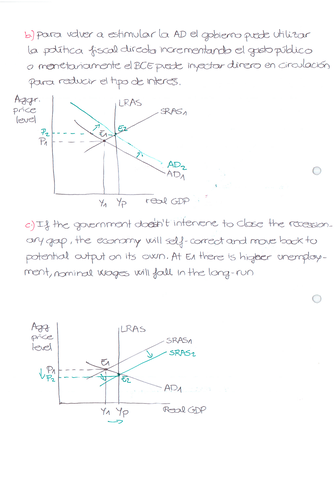 b) Para volver a estimular la AD el gobierno puede utilizar
la política fiscal directa incrementando el gasto público
o monetariamente el BCE puede injectar dinero en circulación
para reducir el tipo de interés.
Aggr.
price
level
LRAS
SRAS1
P2
P1
E1
E2
AD2
AD1
Y1
Yp
real GDP
c) If the government doesn't intervene to close the recession-
ary gap, the economy will self-correct and move back to
potential output on its own. At E1 there is higher unemploy-
ment, nominal wages will fall in the long-run
Agg
price
level
LRAS
SRAS1
SRAS2
P1
P2
E1
E2
AD1
Y1
Yp
Real GDP